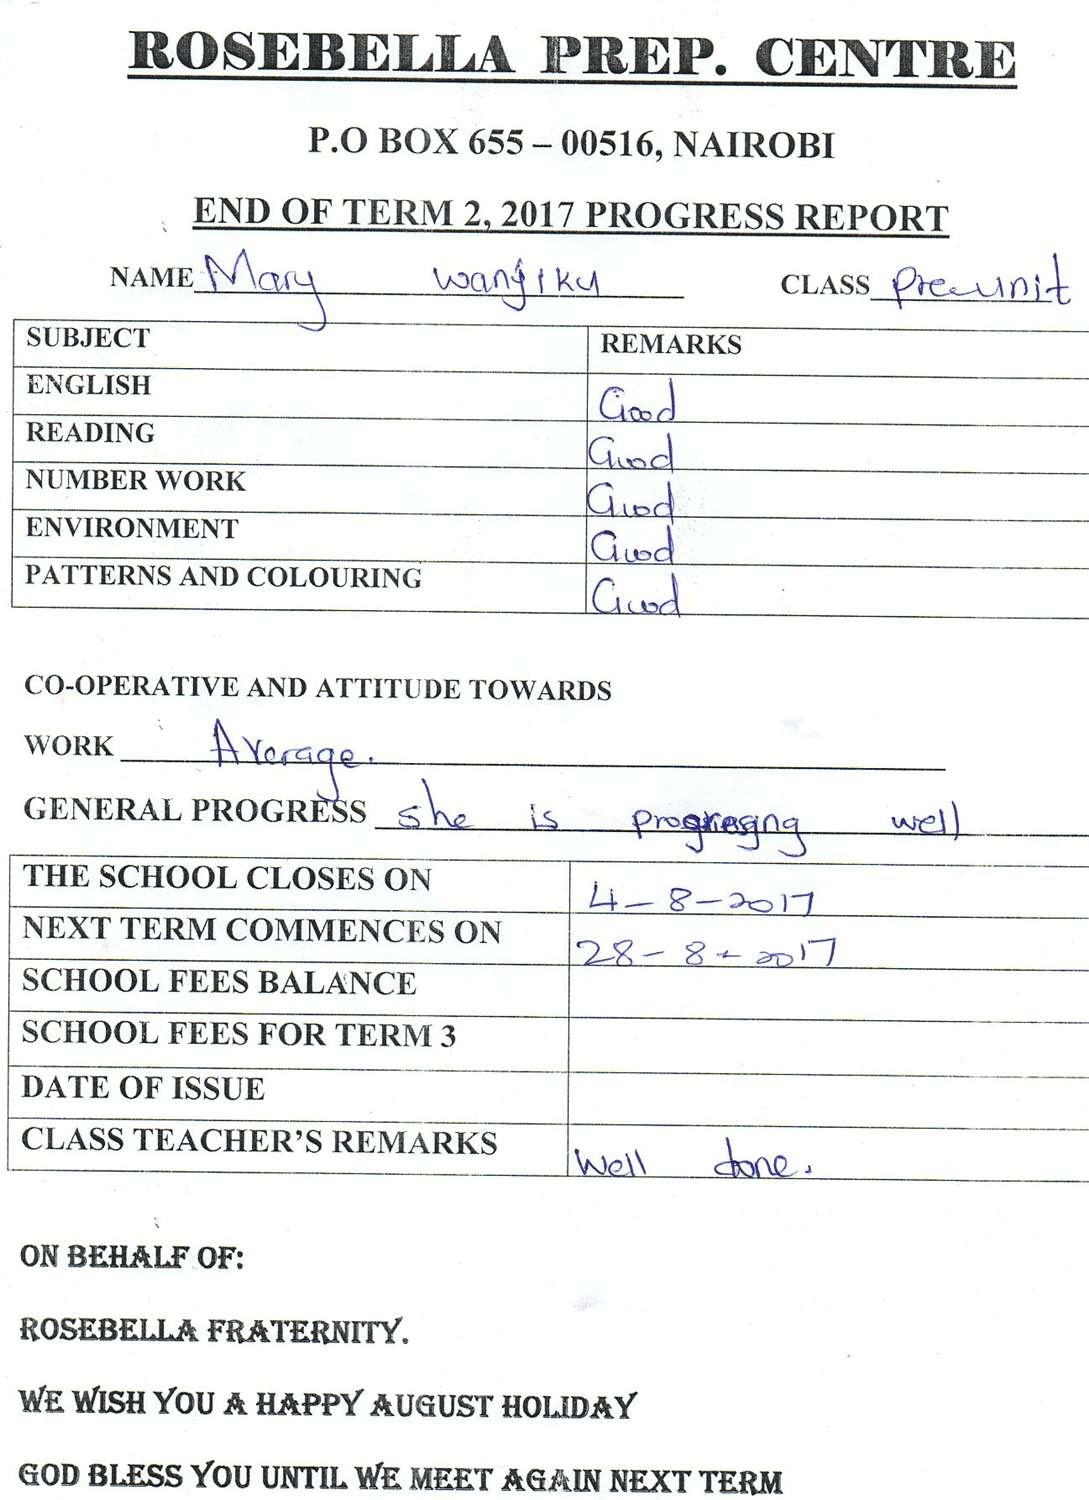 ROSEBELLA PREP. CENTRE
P.O BOX 655 – 00516, NAIROBI
END OF TERM 2, 2017 PROGRESS REPORT
NAME Mary wanjiku CLASS Pre-unit
SUBJECT REMARKS
ENGLISH Good
READING Good
NUMBER WORK Good
ENVIRONMENT Good
PATTERNS AND COLOURING Good
CO-OPERATIVE AND ATTITUDE TOWARDS
WORK Average.
GENERAL PROGRESS she is well
THE SCHOOL CLOSES ON 4-8-2017
NEXT TERM COMMENCES ON 28-8-2017
SCHOOL FEES BALANCE
SCHOOL FEES FOR TERM 3
DATE OF ISSUE
CLASS TEACHER'S REMARKS Well done.
ON BEHALF OF:
ROSEBELLA FRATERNITY.
WE WISH YOU A HAPPY AUGUST HOLIDAY
GOD BLESS YOU UNTIL WE MEET AGAIN NEXT TERM